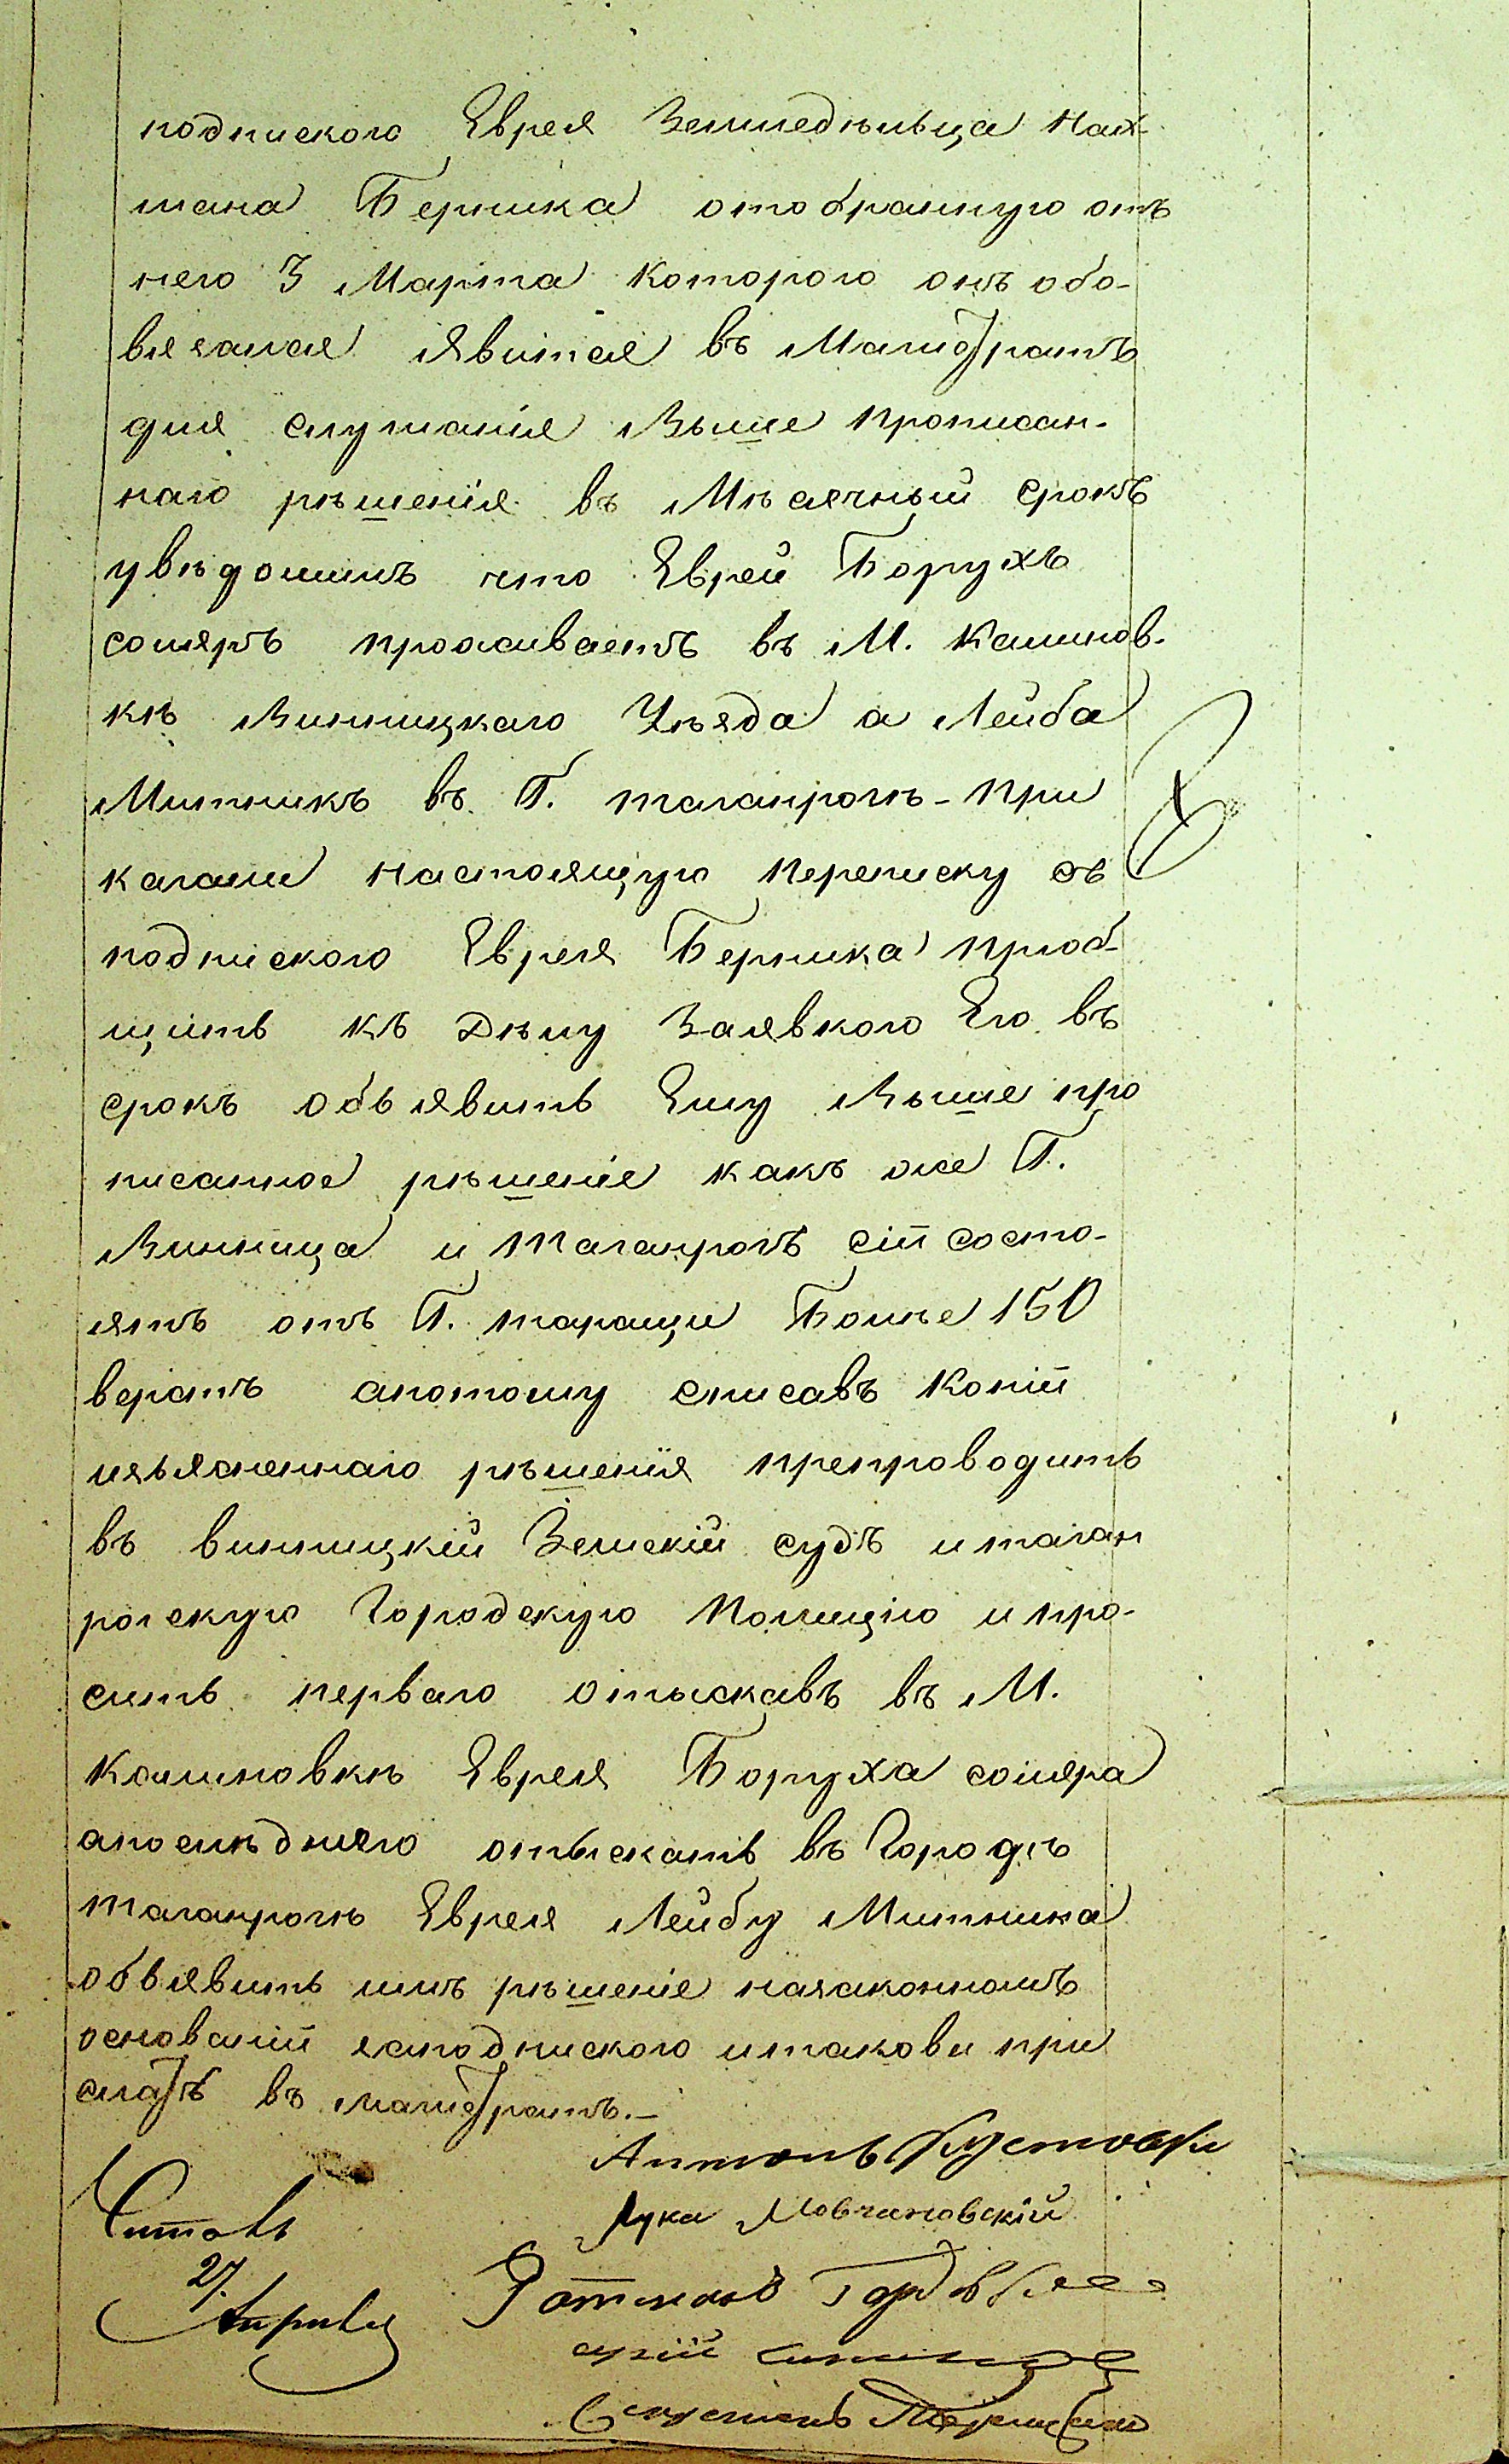 подпискою Еврея Земледѣльца Нах-
мана Берника отобранную отъ
него 3 Марта которою онъ обо-
вязался явится въ Магистратъ
для слушанія Выше прописан-
наго рѣшенія въ Мѣсячный срокъ
увѣдомилъ что Еврей Борухъ
соляръ проживаетъ въ М. Калинов-
кѣ Винницкаго Уѣзда а Лейба
Митникъ въ Г. таганрогѣ - При
казали настоящую переписку съ
подпискою Еврея Берника приоб-
щить къ Дѣлу Заявкою Его въ
срокъ объявить Ему Выше про
писанное рѣшеніе какъ же Г.
Винница и Таганрогъ сіи состо-
ятъ отъ Г. таращи Болѣе 150
верстъ апотому списавъ Копіи
изъясненнаго рѣшенія препроводить
въ винницкій Земскій судъ итаган
рогскую Городскую Полицію и про-
сить перваго отыскавъ въ М.
Калиновкѣ Еврея Боруха соляра
апослѣдняго отыскать въ Городѣ
Таганрогѣ Еврея Лейбу Митника
объявить имъ рѣшеніе назаконномъ
основаніи заподпискою итакови при
слать въ магистратъ. -
Антонъ
Лука Мовчановскій
Читалъ
27.
Ратманъ